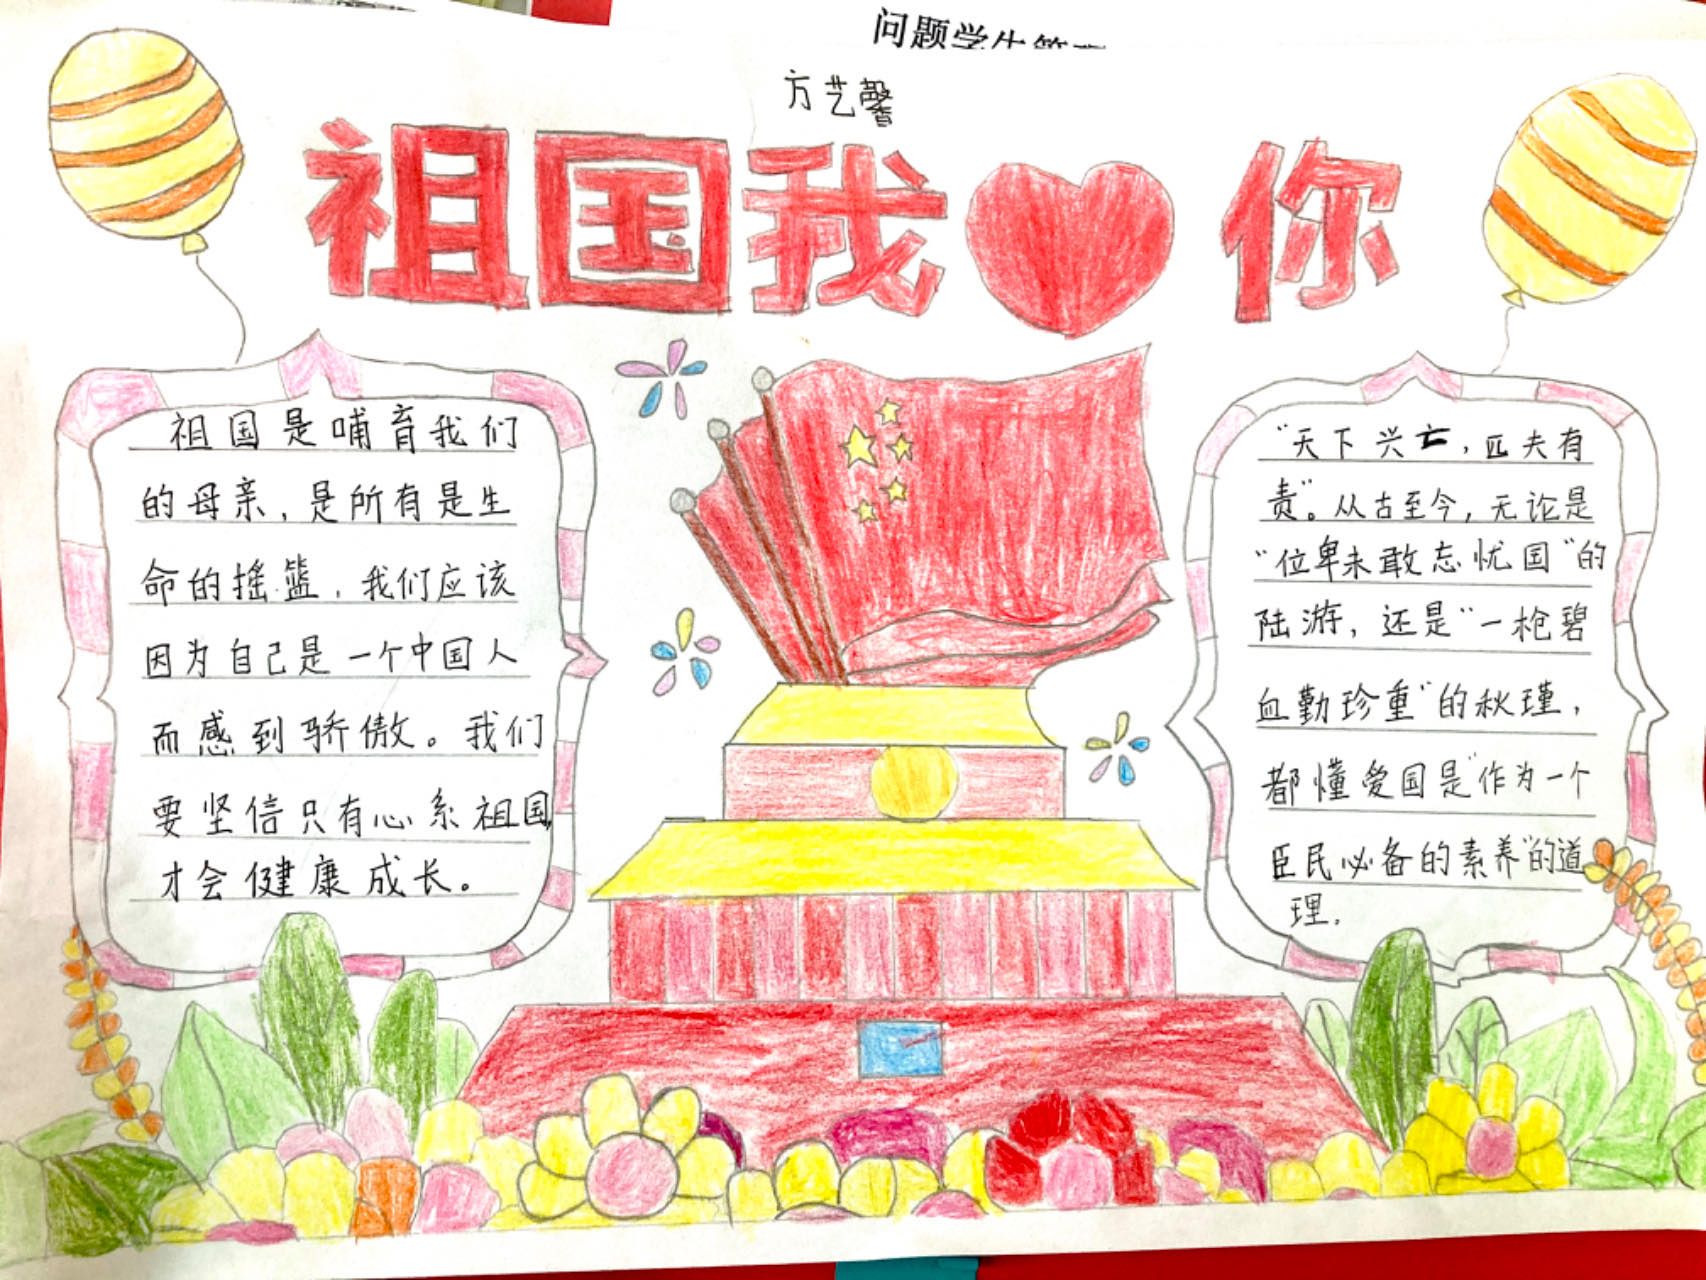 问题学生
方艺馨
祖国我你
祖国是哺育我们
的母亲，是所有是生
命的摇篮，我们应该
因为自己是一个中国人
而感到骄傲。我们
要坚信只有心系祖国
才会健康成长。
“天下兴亡，匹夫有
责”。从古至今，无论是
“位卑未敢忘忧国”的
陆游，还是“一枪碧
血勤珍重”的秋瑾，
都懂爱国是“作为一个
臣民必备的素养”的道
理.